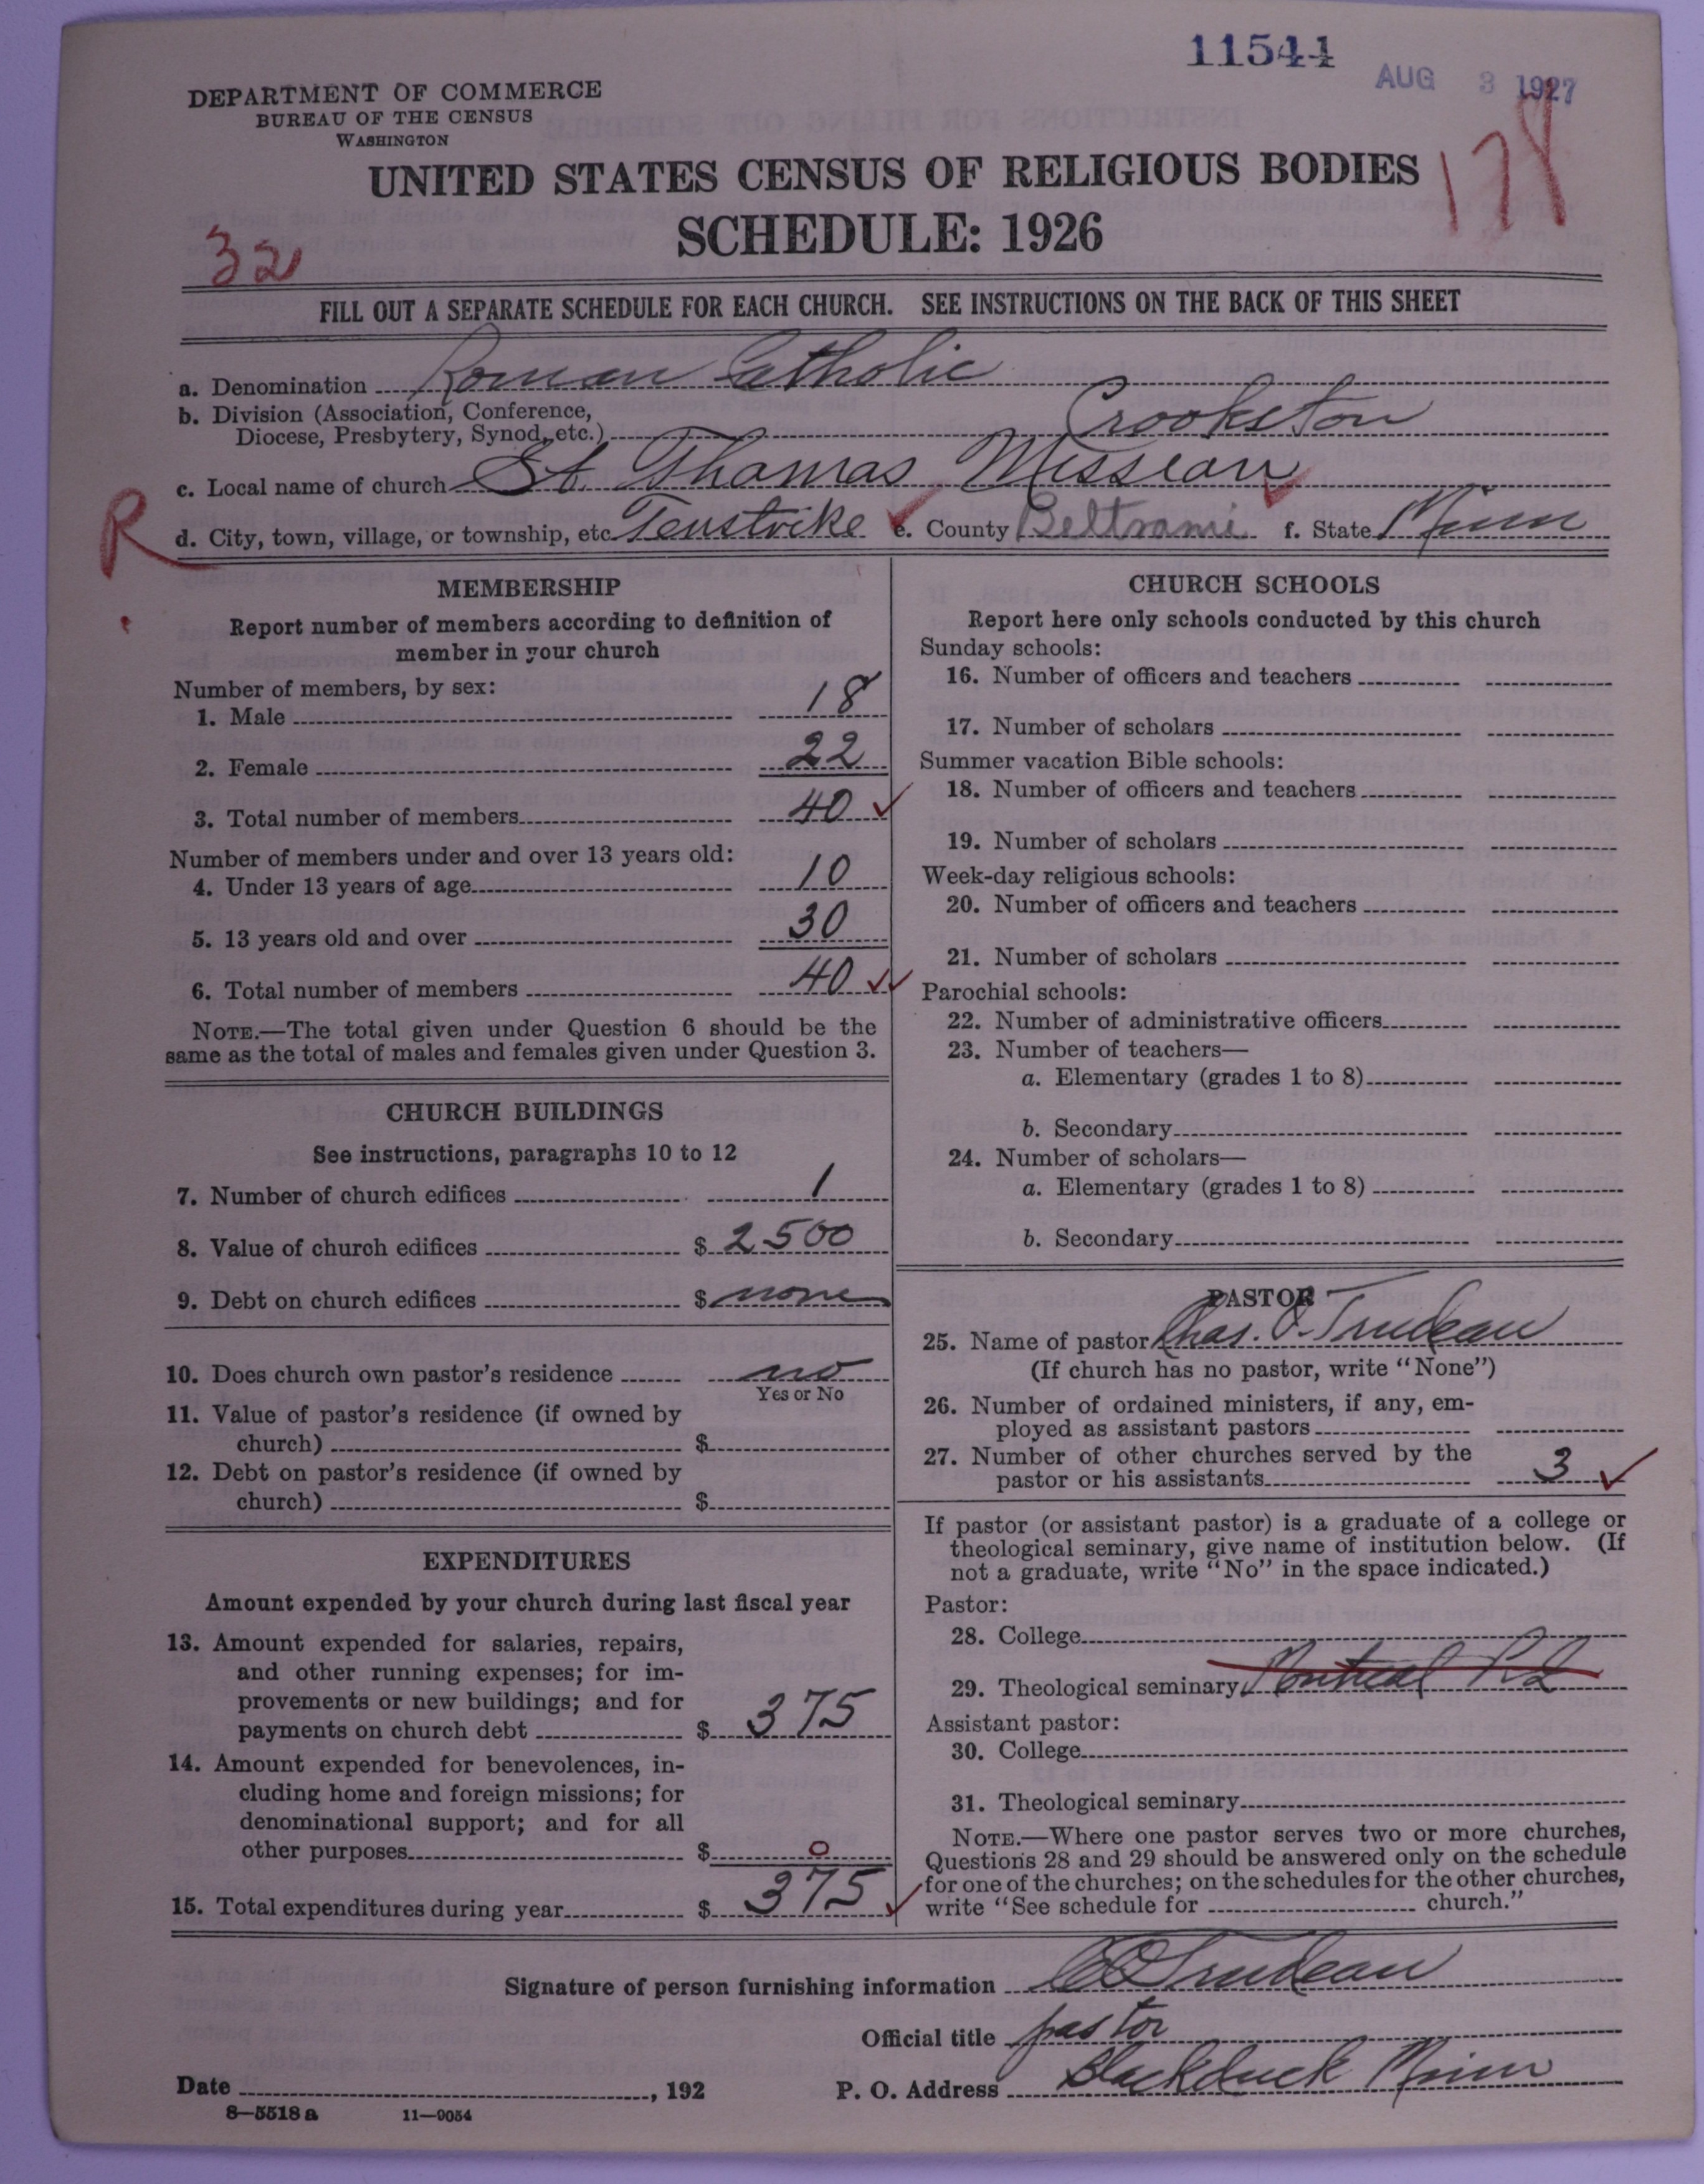 11544
AUG 3 1927
DEPARTMENT OF COMMERCE
BUREAU OF THE CENSUS
WASHINGTON
UNITED STATES CENSUS OF RELIGIOUS BODIES
178
SCHEDULE: 1926
32
FILL OUT A SEPARATE SCHEDULE FOR EACH CHURCH. SEE INSTRUCTIONS ON THE BACK OF THIS SHEET
a. Denomination Roman Catholic
b. Division (Association, Conference,
Diocese, Presbytery, Synod, etc.) Crookston
c. Local name of church St. Thomas Mission
R
d. City, town, village, or township, etc. Tenstrike e. County Beltrami f. State Minn
MEMBERSHIP
Report number of members according to definition of
member in your church
Number of members, by sex:
1. Male 18
2. Female 22
3. Total number of members 40
Number of members under and over 13 years old:
4. Under 13 years of age 10
5. 13 years old and over 30
6. Total number of members 40
NOTE.—The total given under Question 6 should be the
same as the total of males and females given under Question 3.
CHURCH BUILDINGS
See instructions, paragraphs 10 to 12
7. Number of church edifices 1
8. Value of church edifices $ 2500
9. Debt on church edifices $ none
10. Does church own pastor's residence no
Yes or No
11. Value of pastor's residence (if owned by
church) $
12. Debt on pastor's residence (if owned by
church) $
EXPENDITURES
Amount expended by your church during last fiscal year
13. Amount expended for salaries, repairs,
and other running expenses; for im-
provements or new buildings; and for
payments on church debt $ 375
14. Amount expended for benevolences, in-
cluding home and foreign missions; for
denominational support; and for all
other purposes $ 0
15. Total expenditures during year $ 375
CHURCH SCHOOLS
Report here only schools conducted by this church
Sunday schools:
16. Number of officers and teachers
17. Number of scholars
Summer vacation Bible schools:
18. Number of officers and teachers
19. Number of scholars
Week-day religious schools:
20. Number of officers and teachers
21. Number of scholars
Parochial schools:
22. Number of administrative officers
23. Number of teachers—
a. Elementary (grades 1 to 8)
b. Secondary
24. Number of scholars—
a. Elementary (grades 1 to 8)
b. Secondary
PASTOR
25. Name of pastor Chas. O. Trudeau
(If church has no pastor, write "None")
26. Number of ordained ministers, if any, em-
ployed as assistant pastors
27. Number of other churches served by the
pastor or his assistants 3
If pastor (or assistant pastor) is a graduate of a college or
theological seminary, give name of institution below. (If
not a graduate, write "No" in the space indicated.)
Pastor:
28. College
29. Theological seminary Montreal
Assistant pastor:
30. College
31. Theological seminary
NOTE.—Where one pastor serves two or more churches,
Questions 28 and 29 should be answered only on the schedule
for one of the churches; on the schedules for the other churches,
write "See schedule for church."
Signature of person furnishing information C O Trudeau
Official title pastor
Date , 192 P. O. Address Blackduck Minn
8—5518 a 11—9054